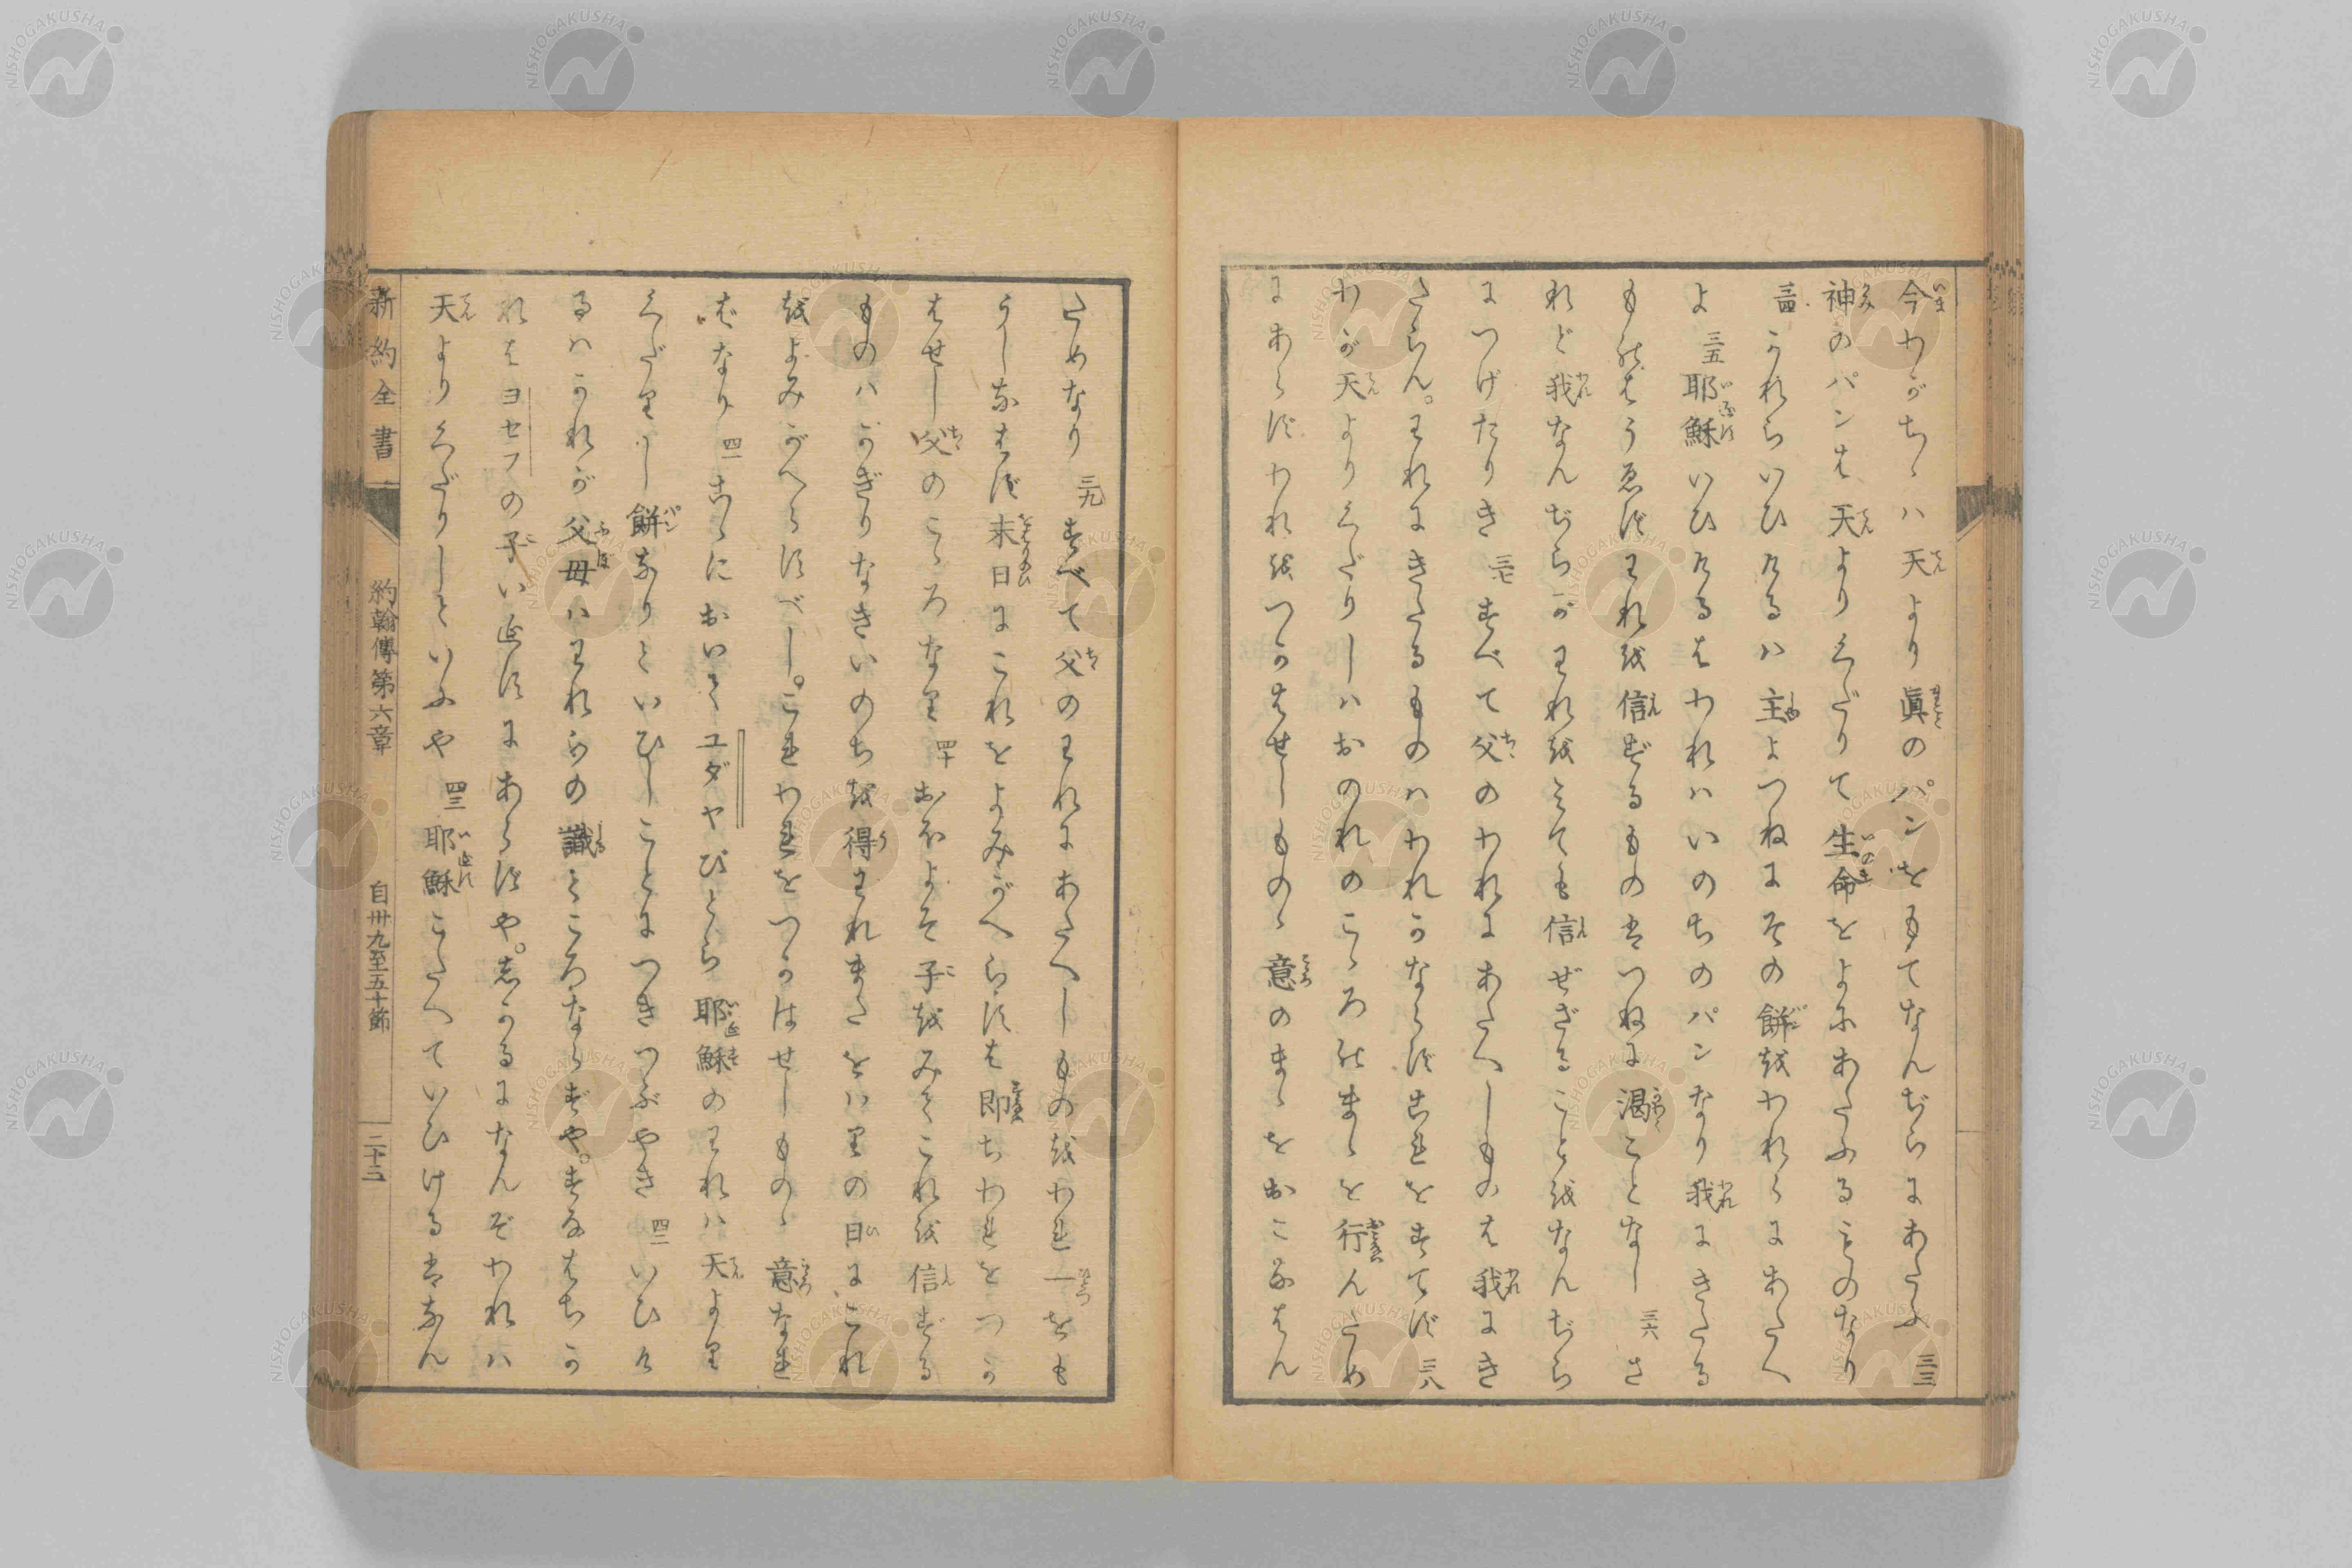 今わがちゝハ天より眞のパンをもてなんぢらにあたふ 三三
神のパンは天よりくだりて生命をよにあたふるものなり
三四 かれらいひけるハ主よつねにその餅をわれらにあたへ
よ 三五 耶穌いひけるはわれハいのちのパンなり我にきたる
ものはうゑずわれを信ずるものはつねに渇ことなし 三六 さ
れど我なんぢらがわれをみても信ぜざることをなんぢら
につげたりき 三七 すべて父のわれにあたへしものは我にき
たらん。われにきたるものハわれかならずこれをすてず 三八
わが天よりくだりしハおのれのこゝろのまゝを行んため
にあらずわれをつかはせしものゝ意のまゝをおこなはん
ためなり 三九 すべて父のわれにあたへしものをわれ一をも
うしなはず末日にこれをよみがへらすは即ちわれをつか
はせし父のこゝろなり 四十 おほよそ子をみてこれを信ずる
ものハかぎりなきいのちを得われまたをハりの日にこれ
をよみがへらすべし。これわれをつかはせしものゝ意なれ
ばなり 四一 こゝにおいてユダヤびとら耶穌のわれハ天より
くだりし餅なりといひしことにつきつぶやき 四二 いひけ
るハかれが父母ハわれらの識ところならずや。すなはちか
れはヨセフの子いゑすにあらずや。しかるになんぞわれハ
天よりくだりしといふや 四三 耶穌こたへていひけるはなん
新約全書 約翰傳第六章 自卅九至五十節 二十二
NISHOGAKUSHA